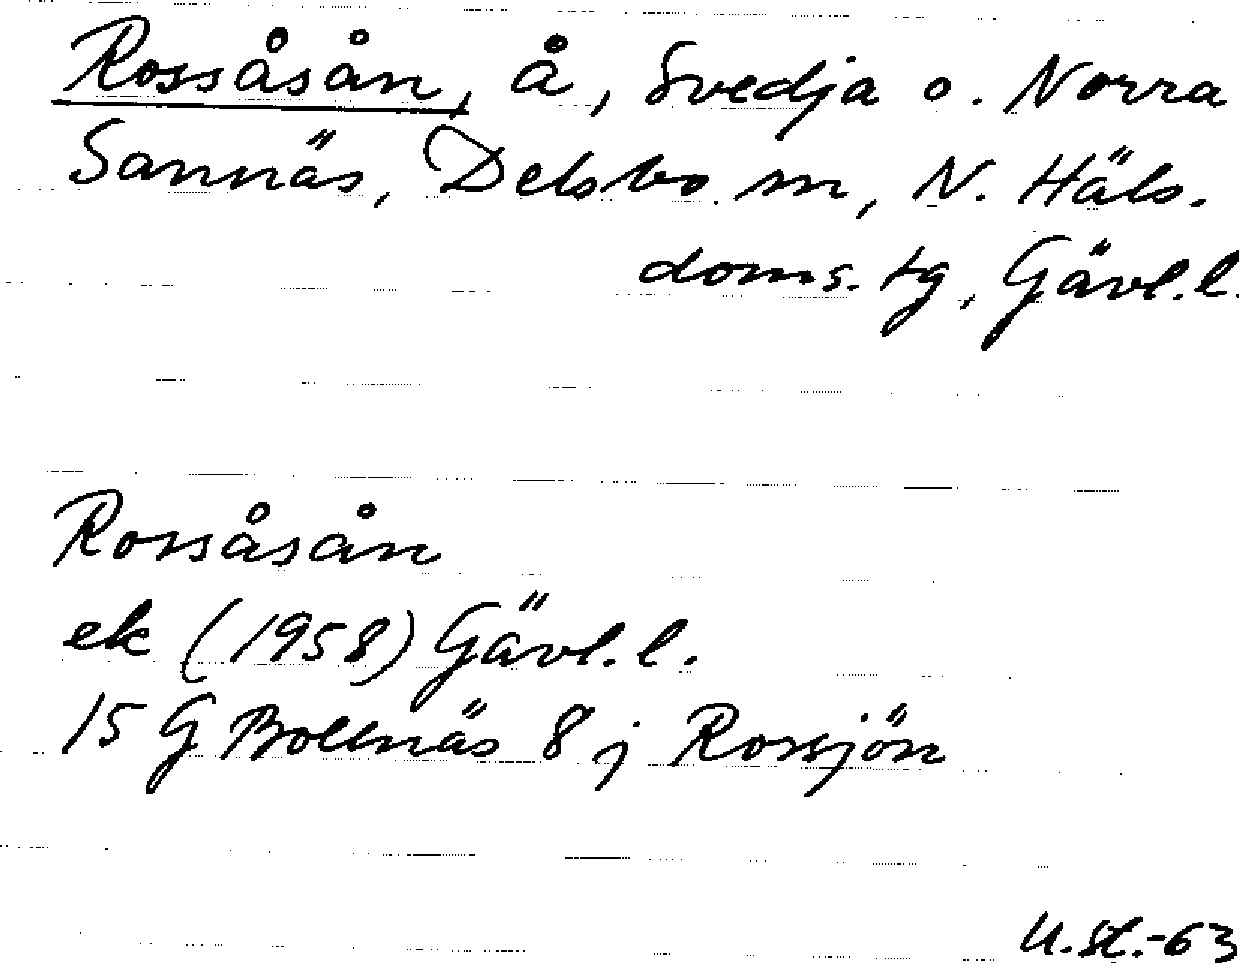 Rossåsån, å, Svedja o. Norra
Sannäs, Delsbo sn, N. Häls.
doms. tg, Gävl.l.
Rossåsån
ek (1958) Gävl.l.
15 G Bollnäs 8 j Rossjön
U.St.-63